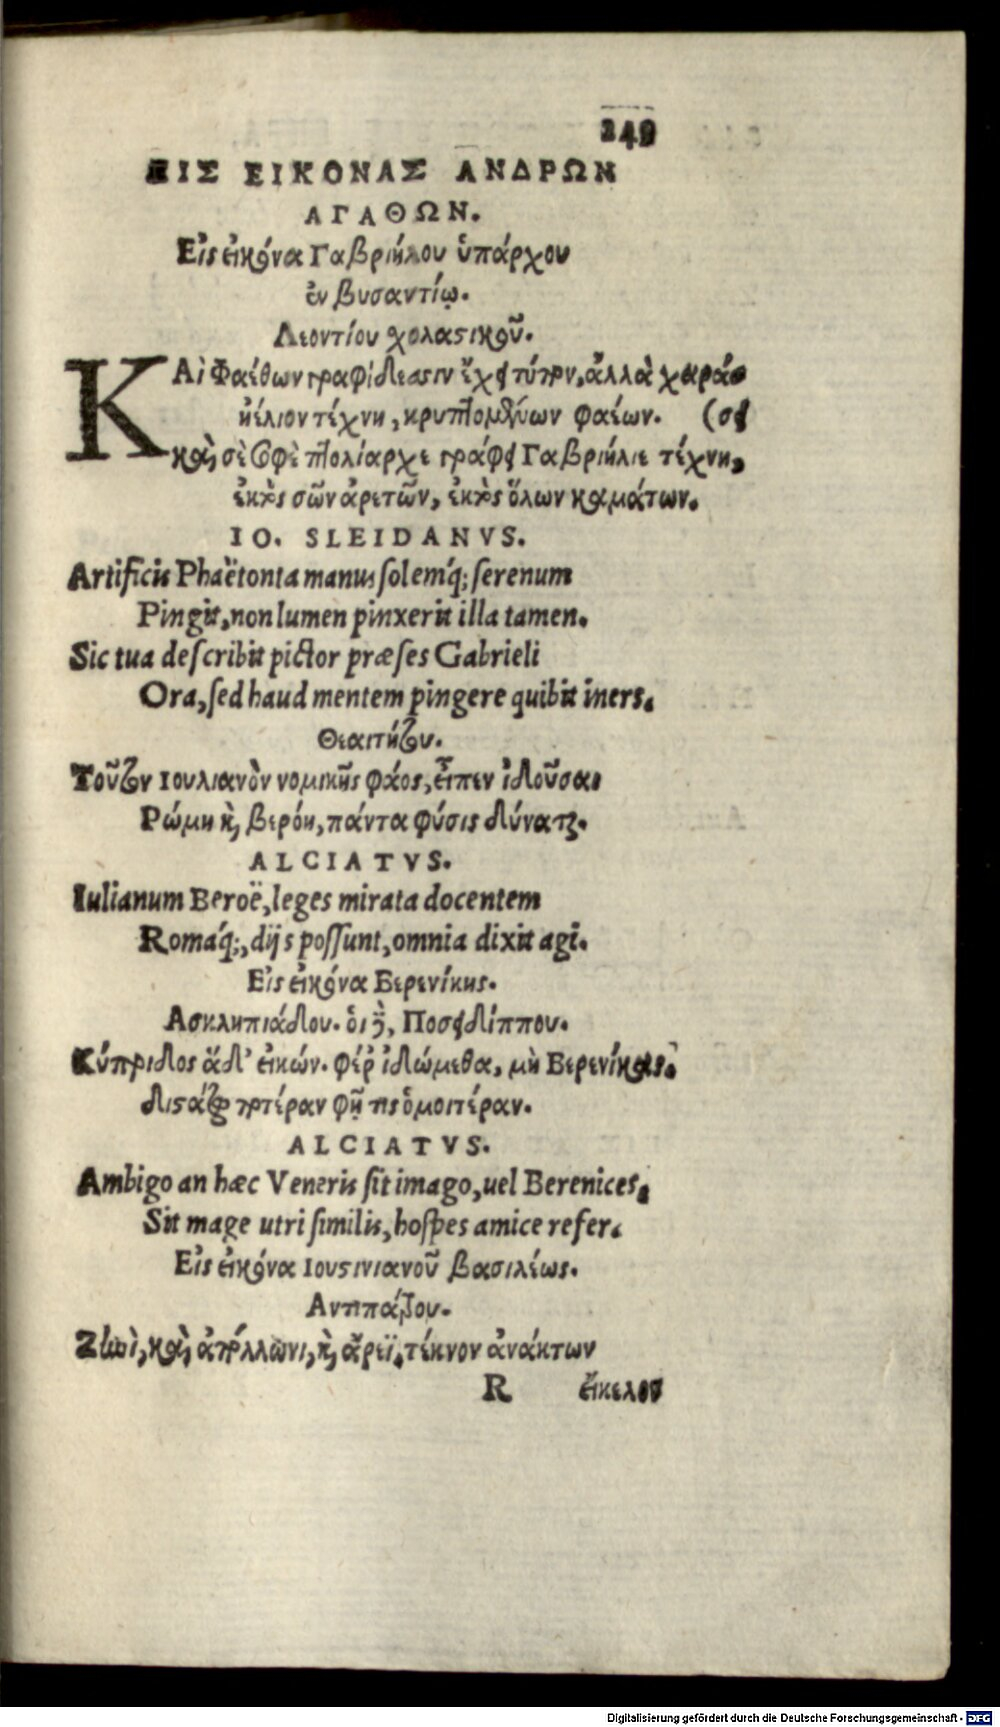 249
ΕΙΣ ΕΙΚΟΝΑΣ ΑΝΔΡΩΝ
ΑΓΑΘΩΝ.
Εἰς εἰκόνα Γαβριήλου ὑπάρχου
ἐν βυσαντίῳ.
Λεοντίου χολαστικοῦ.
ΚΑὶ Φαέθων γραφίδεσσιν ἔχει τύπον, ἀλλὰ χαράσ
ἠέλιον τέχνη, κρυπτομένων φαέων. (σει
καὶ σὲ σοφὲ πτολίαρχε γράφει Γαβριήλιε τέχνη,
ἐκτὸς σῶν ἀρετῶν, ἐκτὸς ὅλων καμάτων.
IO. SLEIDANVS.
Artificis Phaëtonta manus solemq́; serenum
Pingit, non lumen pinxerit illa tamen.
Sic tua describit pictor præses Gabrieli
Ora, sed haud mentem pingere quibit iners.
Θεαιτήτου.
Τοῦτον Ιουλιανὸν νομικῆς φάος, εἶπεν ἰδοῦσαι
Ρώμη καὶ βερόη, πάντα φύσις δύναται.
ALCIATVS.
Iulianum Beroë, leges mirata docentem
Romaq́;, dijs possunt, omnia dixit agi.
Εἰς εἰκόνα Βερενίκης.
Ασκληπιάδου. οἱ δὲ, Ποσειδίππου.
Κύπριδος ἅδ' εἰκών. φέρ' ἰδώμεθα, μὴ Βερενίκας.
διστάζω ποτέραν φῇ τις ὁμοιτέραν.
ALCIATVS.
Ambigo an hæc Veneris sit imago, uel Berenices,
Sit mage utri similis, hospes amice refer.
Εἰς εἰκόνα Ιουστινιανοῦ βασιλέως.
Αντιπάτρου.
Ζηνὶ, καὶ ἀπόλλωνι, καὶ ἄρεϊ, τέκνον ἀνάκτων
R εἴκελον
Digitalisierung gefördert durch die Deutsche Forschungsgemeinschaft - DFG